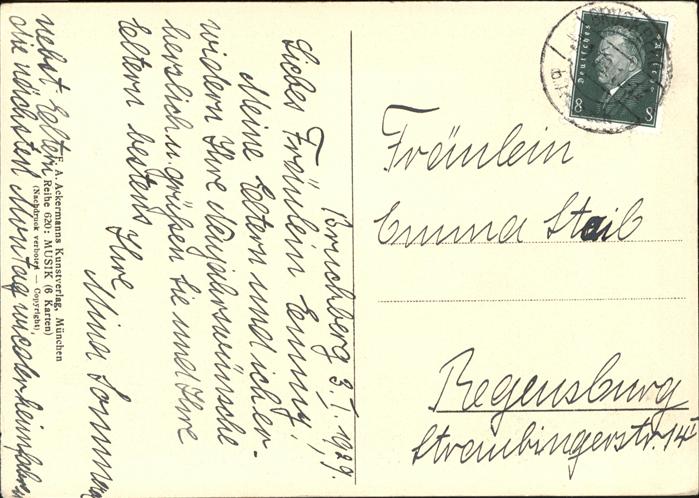 Bruckberg 3.I.1929.
Liebes Fräulein Emmy!
Meine Eltern und ich er-
widern Ihre Neujahrswünsche
herzlich u. grüßen Sie und Ihre
Eltern bestens
Ihre
Mina
nebst Eltern
die nächsten Montag wieder heimfahren
F. A. Ackermanns Kunstverlag, München
Reihe 620: MUSIK (6 Karten)
(Nachdruck verboten — Copyright)
Deutsches Reich
8 8
Fräulein
Emma Staib
Regensburg
Straubingerstr. 14 I